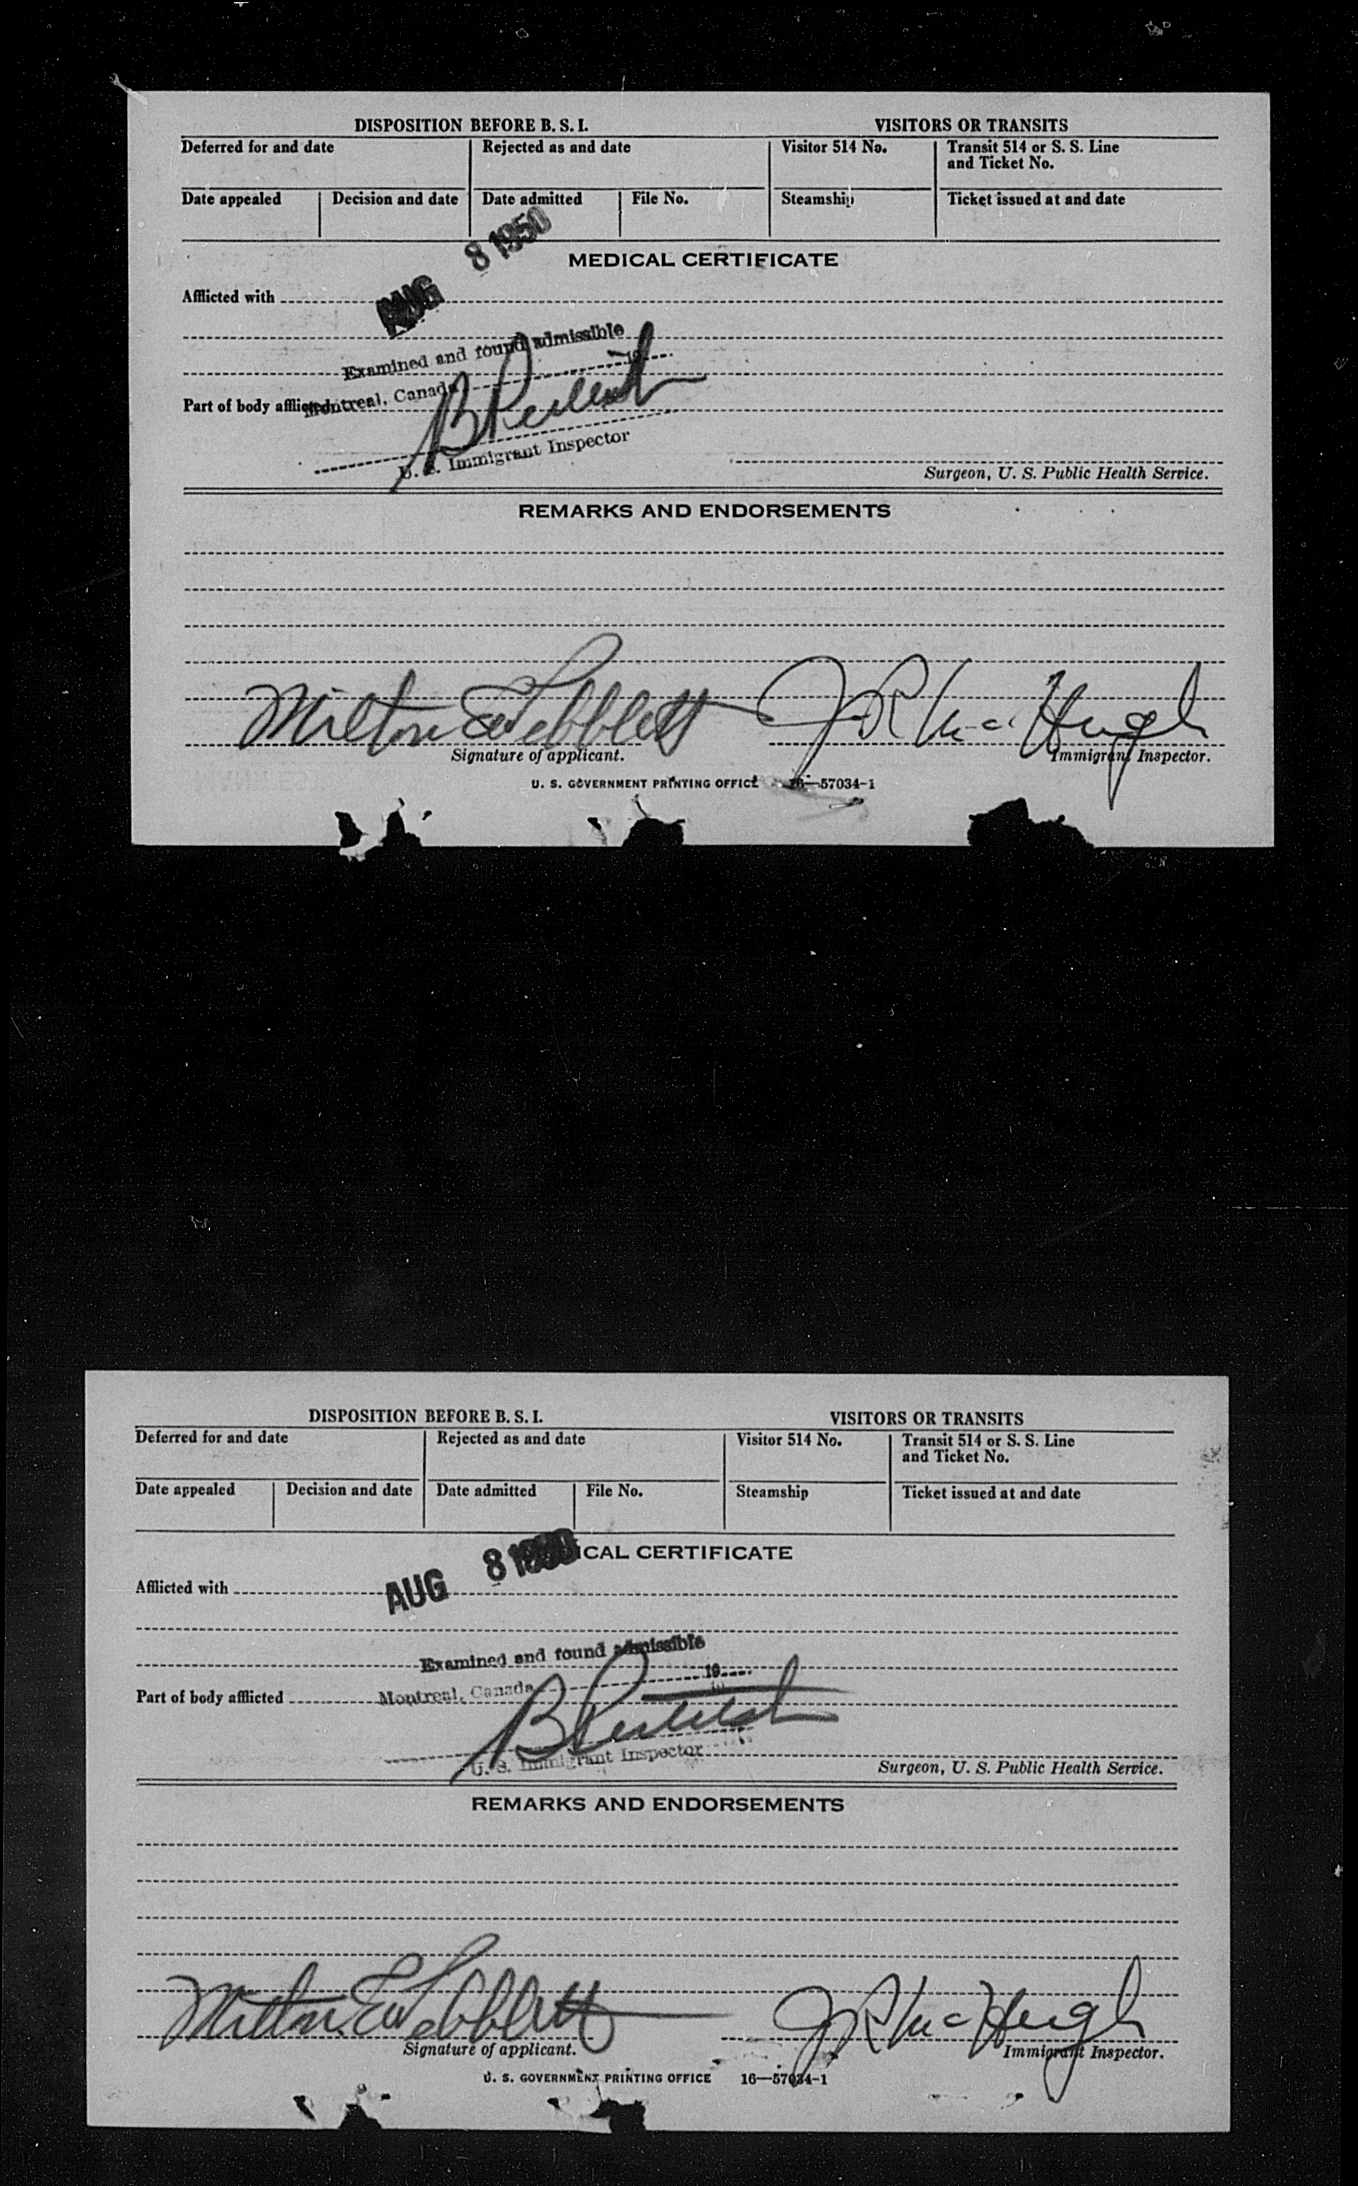 DISPOSITION BEFORE B. S. I. VISITORS OR TRANSITS
Deferred for and date Rejected as and date Visitor 514 No. Transit 514 or S. S. Line
and Ticket No.
Date appealed Decision and date Date admitted File No. Steamship Ticket issued at and date
AUG 8 1950
MEDICAL CERTIFICATE
Afflicted with
Examined and found admissible
Montreal, Canada 19
Part of body afflicted
U. S. Immigrant Inspector
Surgeon, U. S. Public Health Service.
REMARKS AND ENDORSEMENTS
Milton E Tebblett J R MacHugh
Signature of applicant. Immigrant Inspector.
U. S. GOVERNMENT PRINTING OFFICE 16—57034-1
DISPOSITION BEFORE B. S. I. VISITORS OR TRANSITS
Deferred for and date Rejected as and date Visitor 514 No. Transit 514 or S. S. Line
and Ticket No.
Date appealed Decision and date Date admitted File No. Steamship Ticket issued at and date
AUG 8 1950
ICAL CERTIFICATE
Afflicted with
Examined and found admissible
Montreal, Canada 19
Part of body afflicted
U. S. Immigrant Inspector
Surgeon, U. S. Public Health Service.
REMARKS AND ENDORSEMENTS
Milton E Tebblett J R MacHugh
Signature of applicant. Immigrant Inspector.
U. S. GOVERNMENT PRINTING OFFICE 16—57034-1